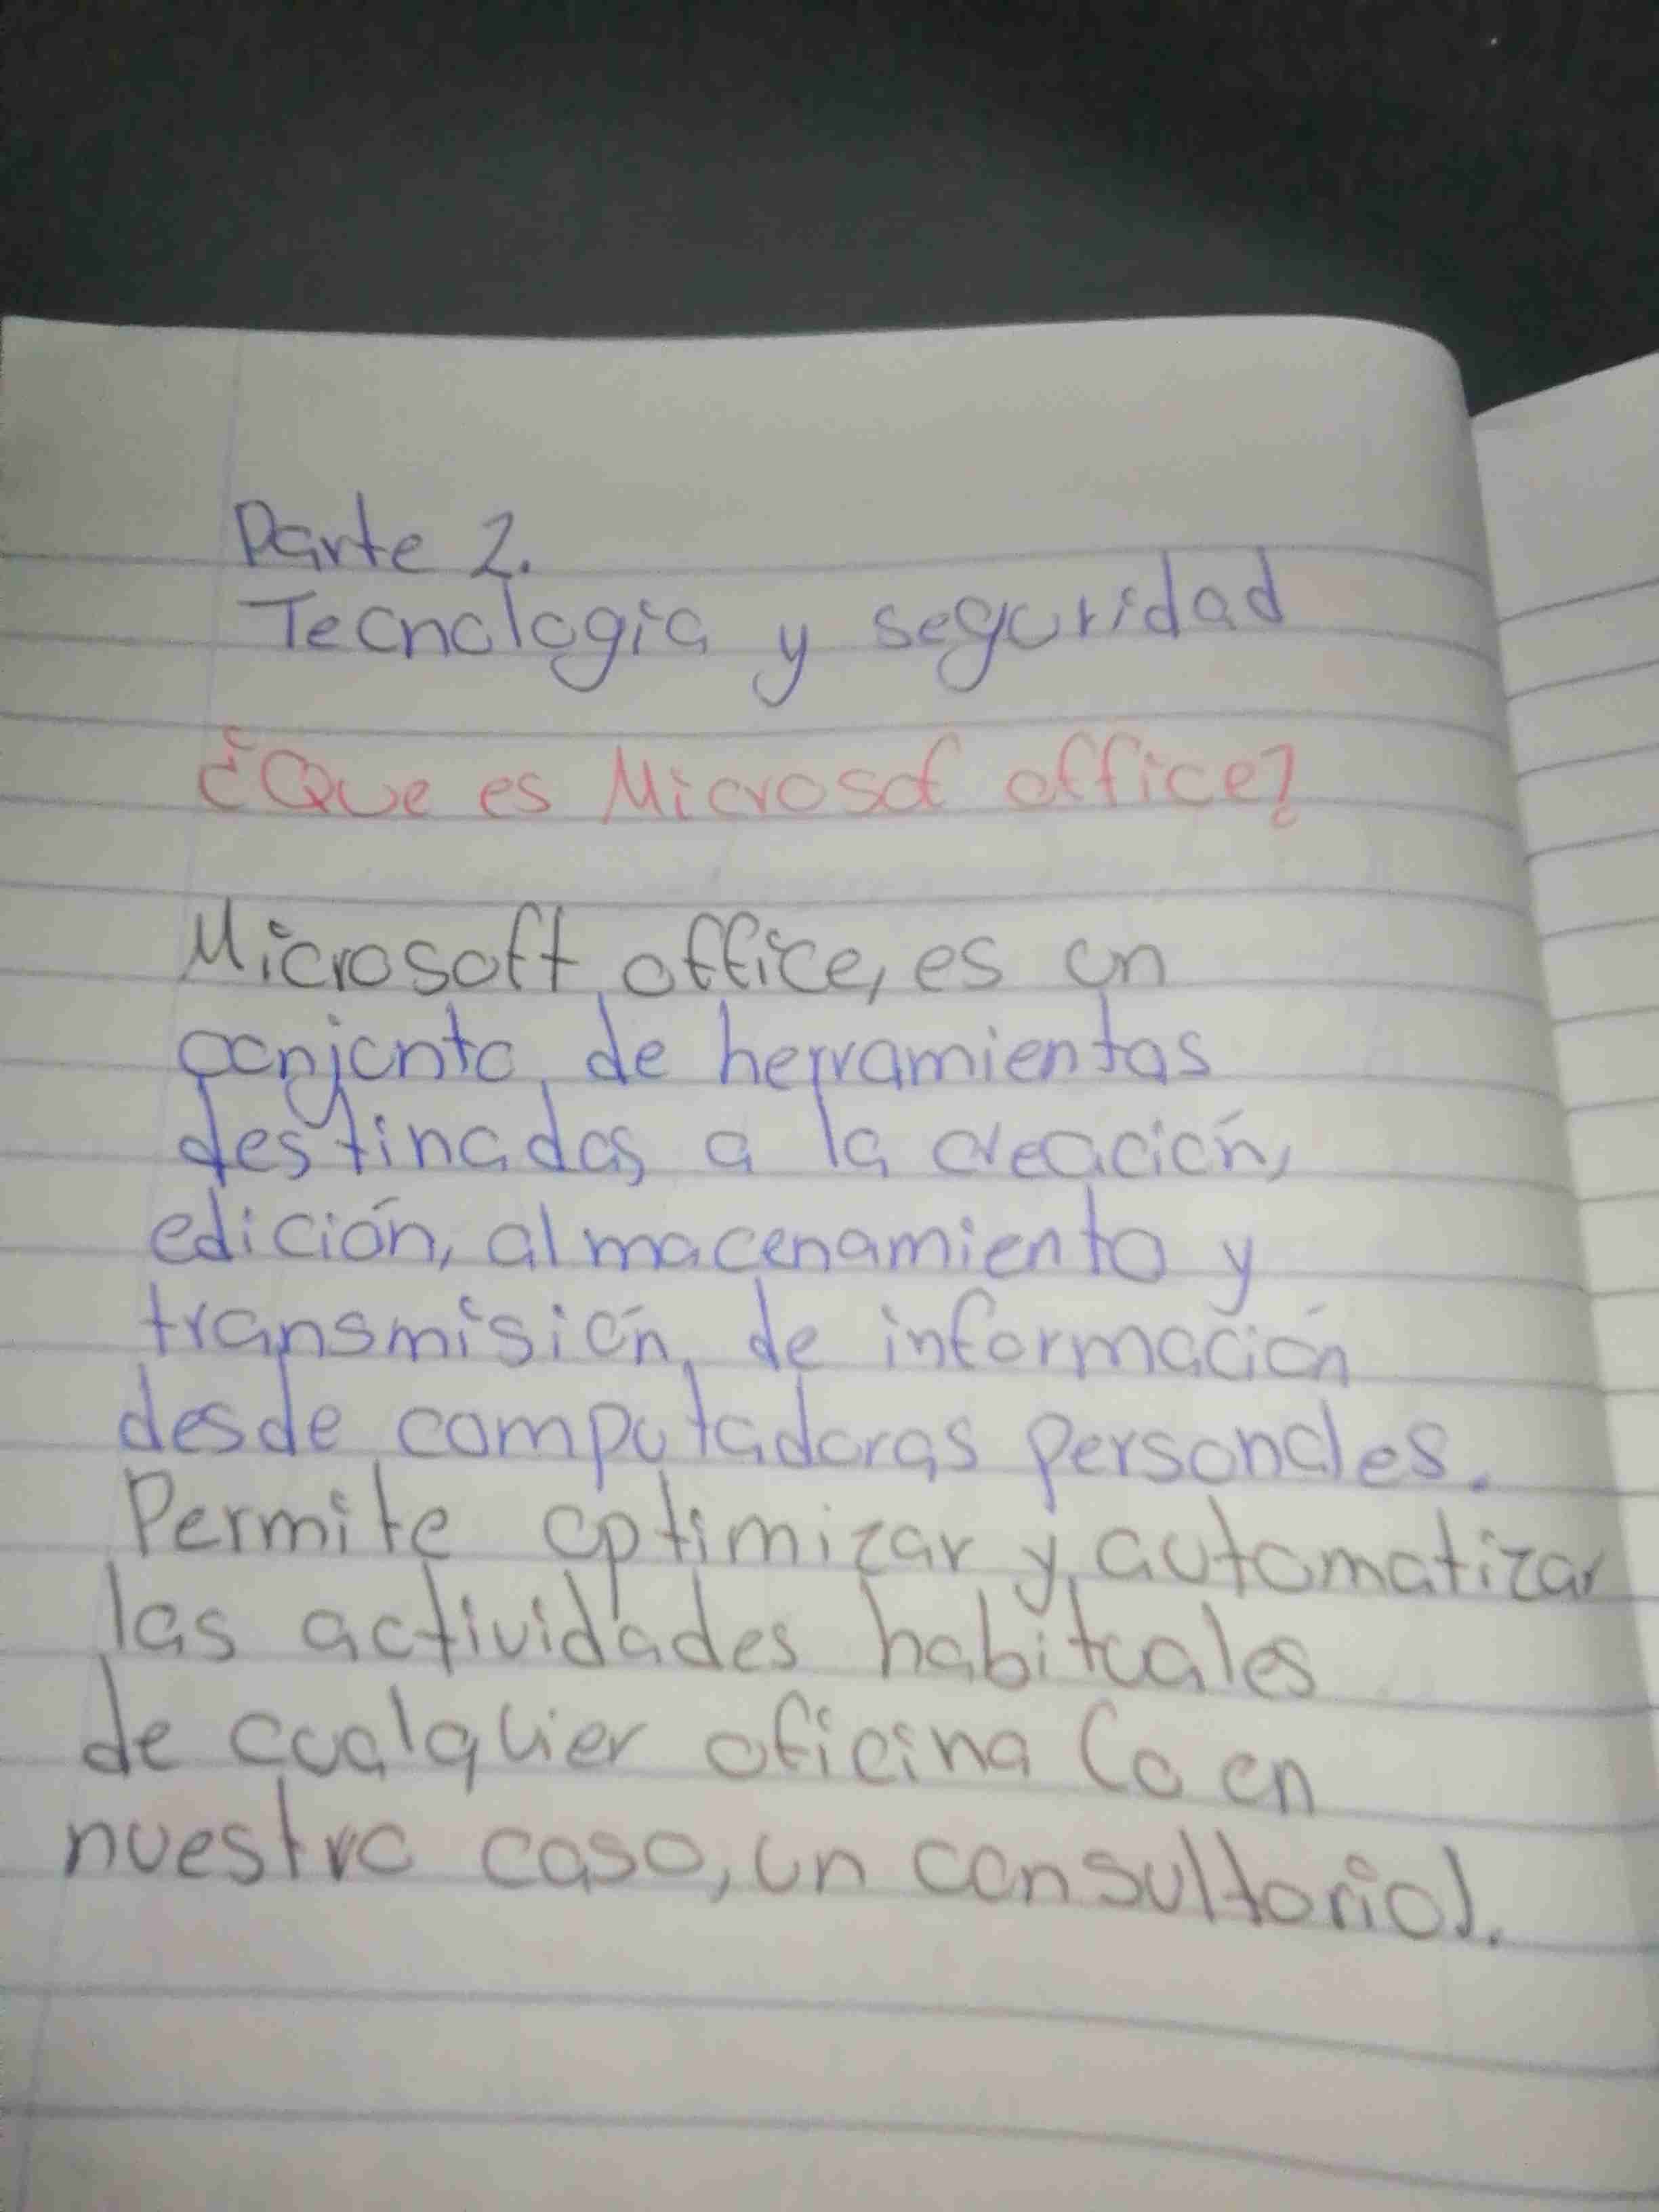 Parte 2.
Tecnologia y seguridad
¿Que es Microsof office?
Microsoft office, es un
conjunto de herramientas
destinadas a la creación,
edición, almacenamiento y
transmisión de información
desde computadoras personales.
Permite optimizar y automatizar
las actividades habituales
de cualquier oficina (o en
nuestro caso, un consultorio).